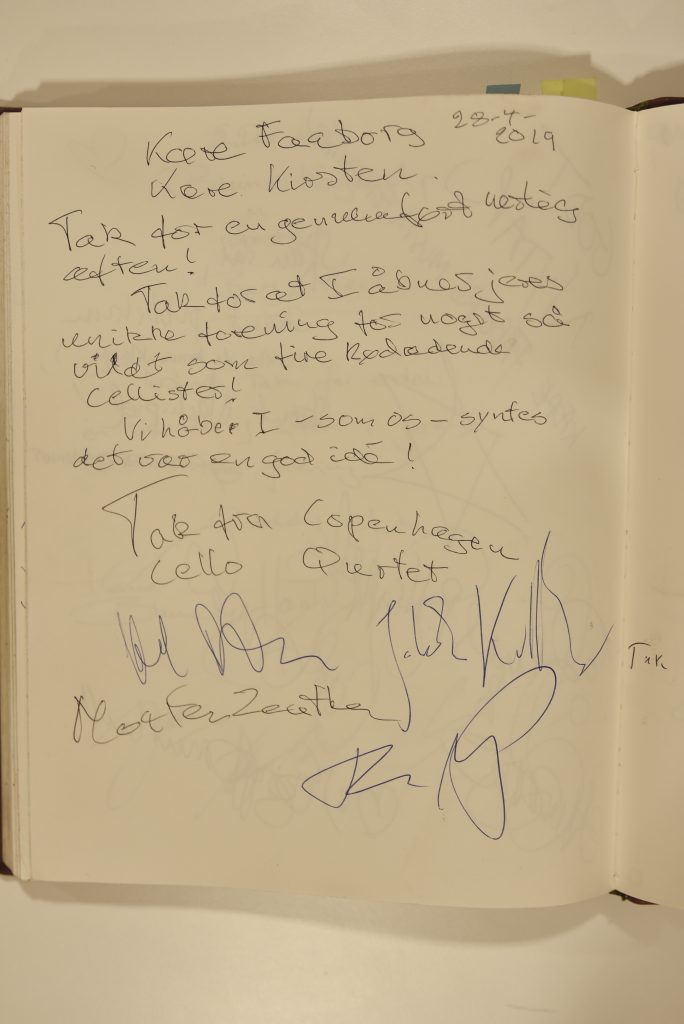 28-4-
2019
Kære Faaborg
Kære Kirsten.
Tak for en gennemført hertig
aften!
Tak for at I åbner jeres
unikke forening for noget så
vildt som fire Rødrødende
cellister!
Vi håber I - som os - syntes
det var en god idé!
Tak fra Copenhagen
Cello Quartet
Morten Zeuthen
Tak